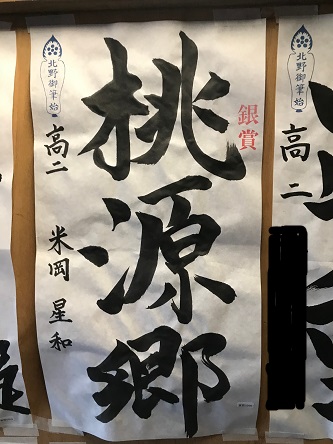 桃源郷
銀賞
北野御筆始
高二
米岡星和
北野御筆始
高二